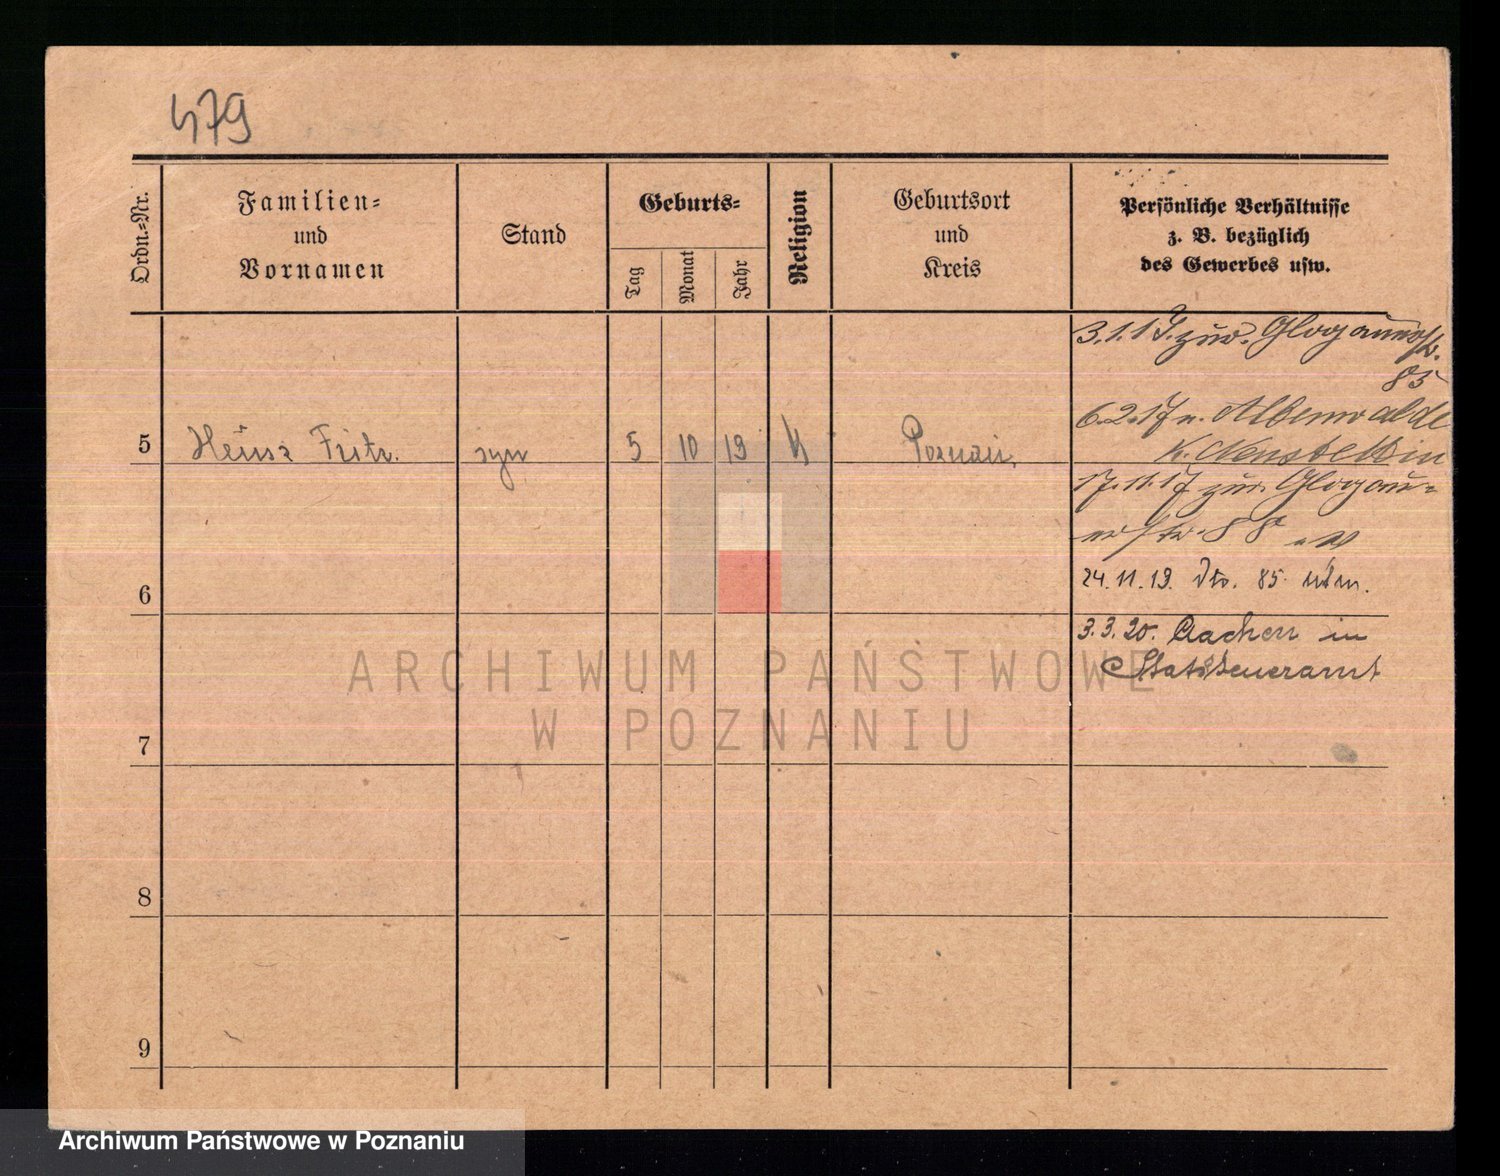 479
Ordn.-Nr.
Familien-
und
Vornamen
Stand
Geburts-
Tag
Monat
Jahr
Religion
Geburtsort
und
Kreis
Persönliche Verhältnisse
z. B. bezüglich
des Gewerbes usw.
3.1.17. zur. Glogauerstr.
85
6.2.17 n. Albenwalde
K. Neustettin
5 Heinz Fritz. syn 5 10 19 K Poznań.
17.11.17 zur. Glogau-
erstr. 88
6
24.11.19. dto. 85.
3.3.20. Aachen in
Statssteueramt
7
8
9
ARCHIWUM PAŃSTWOWE
W POZNANIU
Archiwum Państwowe w Poznaniu